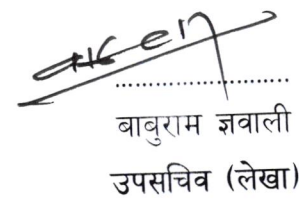 बाबुराम ज्ञवाली
उपसचिव (लेखा)